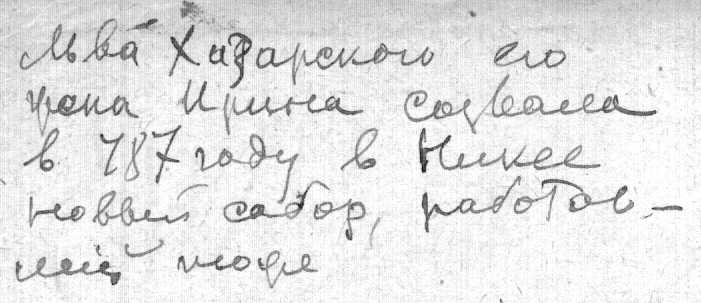 Льва Хазарского его
жена Ирина созвала
в 787 году в Никее
новый собор, работав-
ший